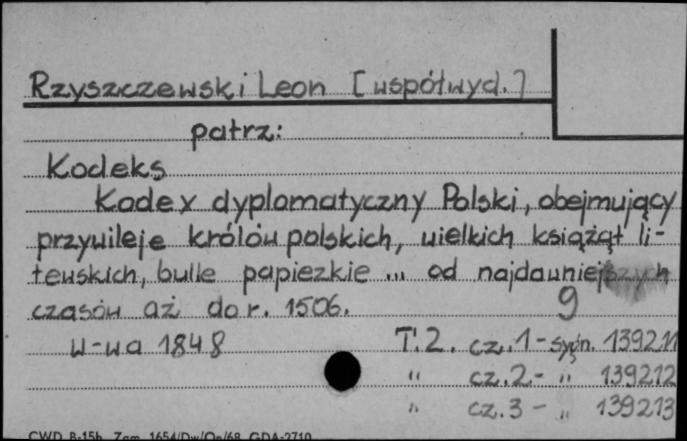 Rzyszczewski Leon [współwyd.]
patrz:
Kodeks
Kodex dyplomatyczny Polski, obejmujący
przywileje królów polskich, wielkich książąt li-
tewskich, bulle papiezkie ... od najdawniejszych
czasów aż do r. 1506. 9
W-wa 1848 T.2. cz.1 - sygn. 139211
" cz.2 - " 139212
" cz.3 - " 139213
CWD B-15h Zam. 1654/Dw/On/68 GDA-2710